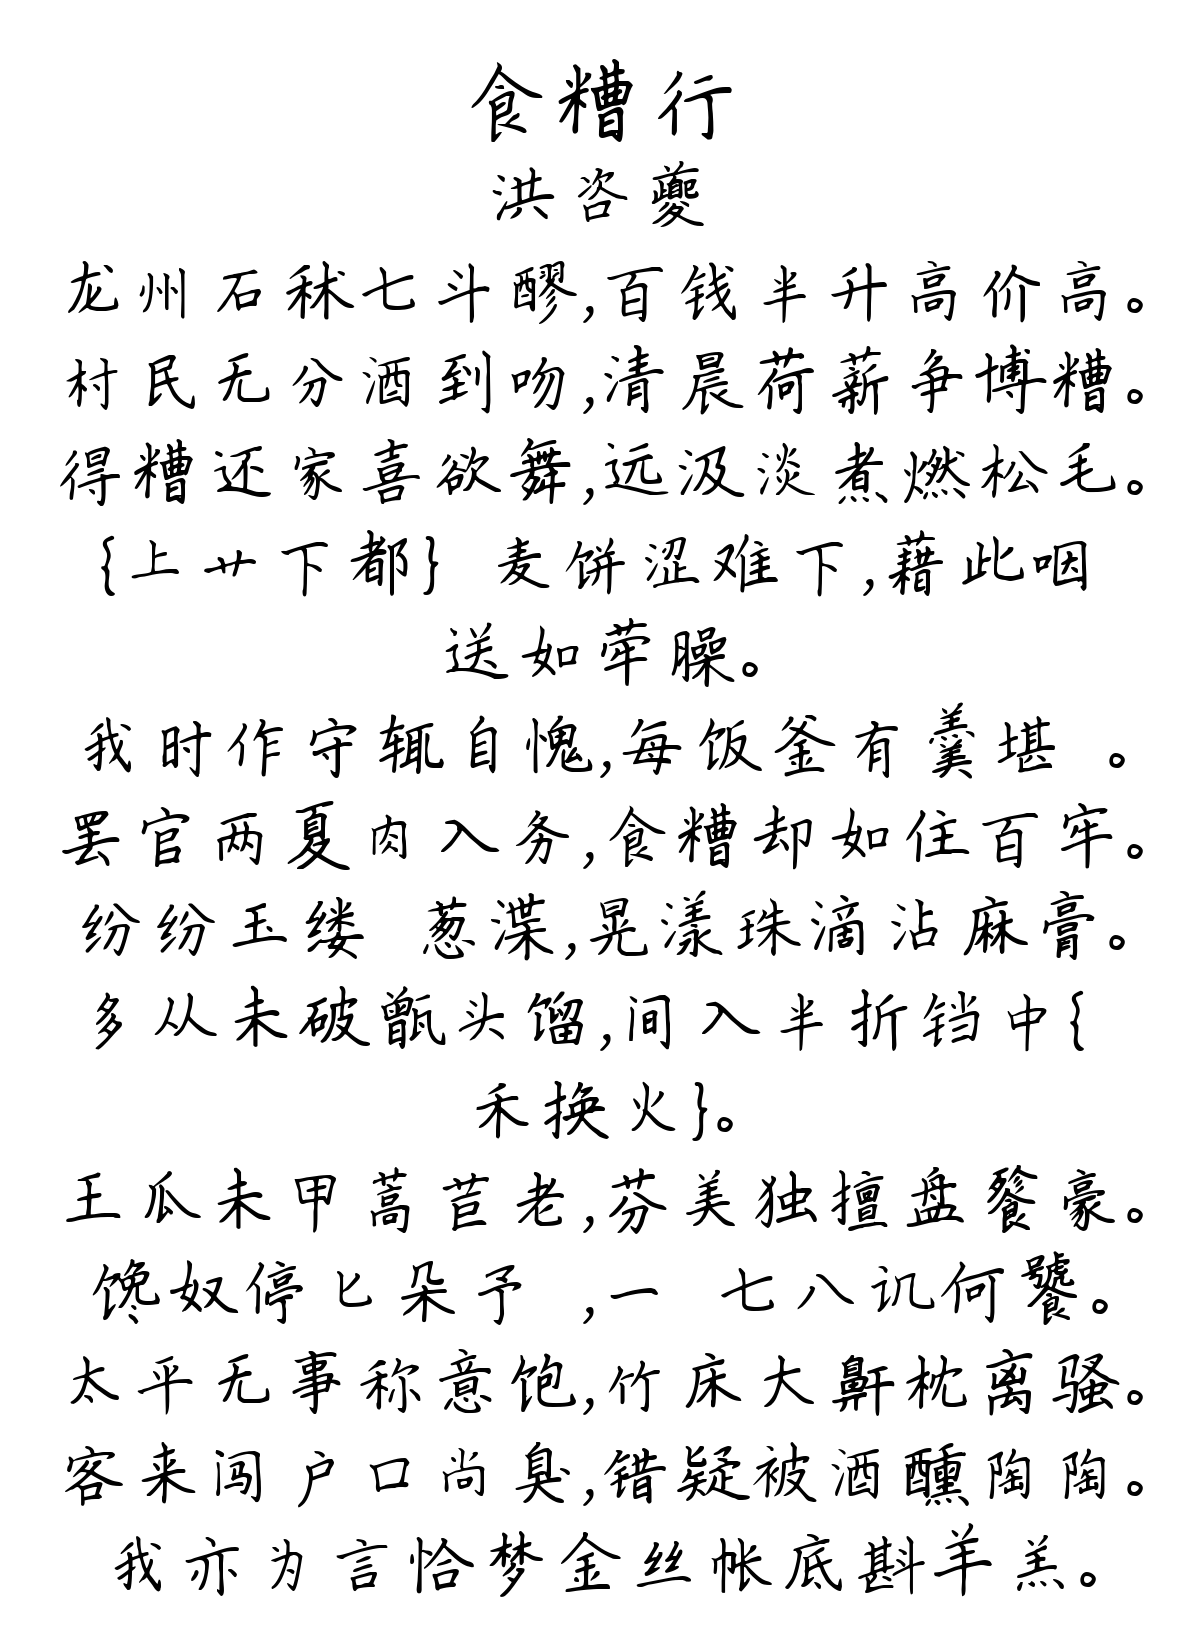 食糟行
洪咨夔
龙州石秫七斗醪,百钱半升高价高。
村民无分酒到吻,清晨荷薪争博糟。
得糟还家喜欲舞,远汲淡煮燃松毛。
{上艹下都} 麦饼涩难下,藉此咽
送如荤臊。
我时作守辄自愧,每饭釜有羹堪 。
罢官两夏肉入务,食糟却如住百牢。
纷纷玉缕 葱渫,晃漾珠滴沾麻膏。
多从未破甑头馏,间入半折铛中{
禾换火}。
王瓜未甲蒿苣老,芬美独擅盘餮豪。
馋奴停匕朵予 ,一 七八讥何饕。
太平无事称意饱,竹床大鼾枕离骚。
客来闯户口尚臭,错疑被酒醺陶陶。
我亦为言恰梦金丝帐底斟羊羔。